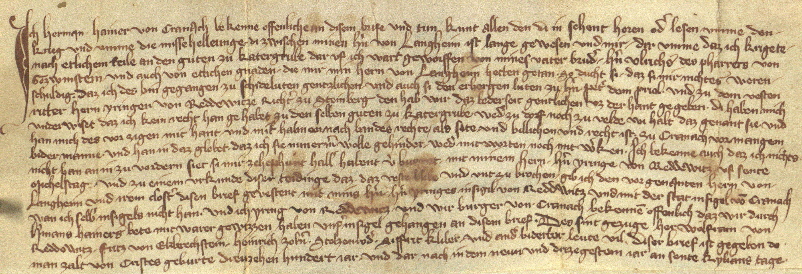 Ich herman hamer von Cranach bekenne offenliche an disem brife und tun kunt allen den di in sehent horen od' lesen umme den
krieg und umme die missehellunge di zwischen minen h'n von Langheim ist lange gewesen und mir dar umme daz ich krigete
nach etlichem teile an den guten zu katergrube dar uf ich wart gewoffen von mines vater brud' h'n ulrichs des pharrers von
und auch von etlichen gnaden die mir min herrn von Langheim hetten getan So ducht si daz si mir nichtes weren
schuldig Daz ich des bin gegangen zu schideluten gentzlichen und auch si den erborgen luten zu h'n dem und zu dem vesten
ritter hern yringen von Reddewitz Richt' zu den hab wir daz beder seit gentlichen vor der hant gegeben di habent mich
under wiset daz ich kein recht han gehabet zu den selben guten zu katergrube wed' zu dorf noch zu velde wi halt daz genant sie und
han mich des vor zigen mit hant und mit halm nach landes rechte als site und billichen und recht ist zu Cranach vor mangem
bider manne und han in daz globet daz ich sie nimerm' wolle gehindern wed' mit worten noch mit w'ken Ich bekenne auch daz ich nichtes
nicht han an in zu vordern sier si mir hall habent mit minem hern h'n yringe von Reddewitz uf sente
Michelstag und zu einem urkunde diser teidinge daz daz und unzubrochen gib ich den vorgenanten herrn von
Langheim und irem closter disen brief gevestent mit mins h'n h'n yringes insigil von Reddwitz und mit der stat insigel von Cranach
wan ich selb' insigels nicht han und ich yring von Reddewitz und wir burger von Cranach bekennen offenlich daz wir durch
h'mans hamers bete mit warer gewizzen haben unser insigel gehangen an disem brief Des sint gezuge her Wolfram von
Reddewitz fritz von heinrich und anderbiderber leute vil diser brief ist gegeben do
man zalt von Cristes geburte dreuzehen hundert iar und dar nach in dem neun und drizegestem iar an sente kylians tage